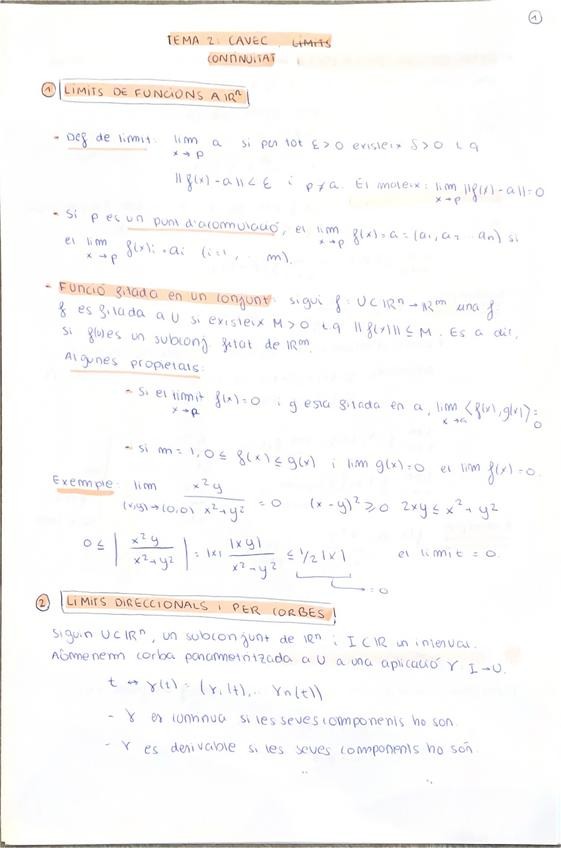 1
TEMA 2: CAVEC. LÍMITS
CONTINUITAT
1 LIMITS DE FUNCIONS A ℝⁿ
- Def de limit: lim x→p a si per tot ε>0 existeix δ>0 tq
||f(x)-a||<ε i p≠a. El mateix: lim x→p ||f(x)-a||=0
- Si p es un punt d'acomulació, el lim x→p f(x)=a=(a₁,a₂...an) si
el lim x→p f(x)i=ai (i=1,...m).
- Funció fitada en un conjunt: sigui f: U⊂ℝⁿ→ℝᵐ una f
f es fitada a U si existeix M>0 tq ||f(x)||≤M. Es a dir,
si f(u) es un subconj. fitat de ℝᵐ.
Algunes propietats:
- Si el límit x→p f(x)=0 i g esta fitada en a, lim x→a <f(x),g(x)>=0
- si m=1, 0≤f(x)≤g(x) i lim g(x)=0 el lim f(x)=0.
Exemple: lim (x,y)→(0,0) x²y/(x²+y²) = 0 (x-y)²≥0 2xy≤x²+y²
0≤|x²y/(x²+y²)|=|x| |xy|/(x²+y²) ≤ 1/2|x| el limit = 0.
→=0
2 LIMITS DIRECCIONALS I PER CORBES
Siguin U⊂ℝⁿ, un subconjunt de ℝⁿ i I⊂ℝ un interval.
Anomenem corba parametritzada a U a una aplicació γ I→U.
t ↔ γ(t) = (γ₁(t),... γn(t))
- γ es continua si les seves components ho son.
- γ es derivable si les seves components ho són.